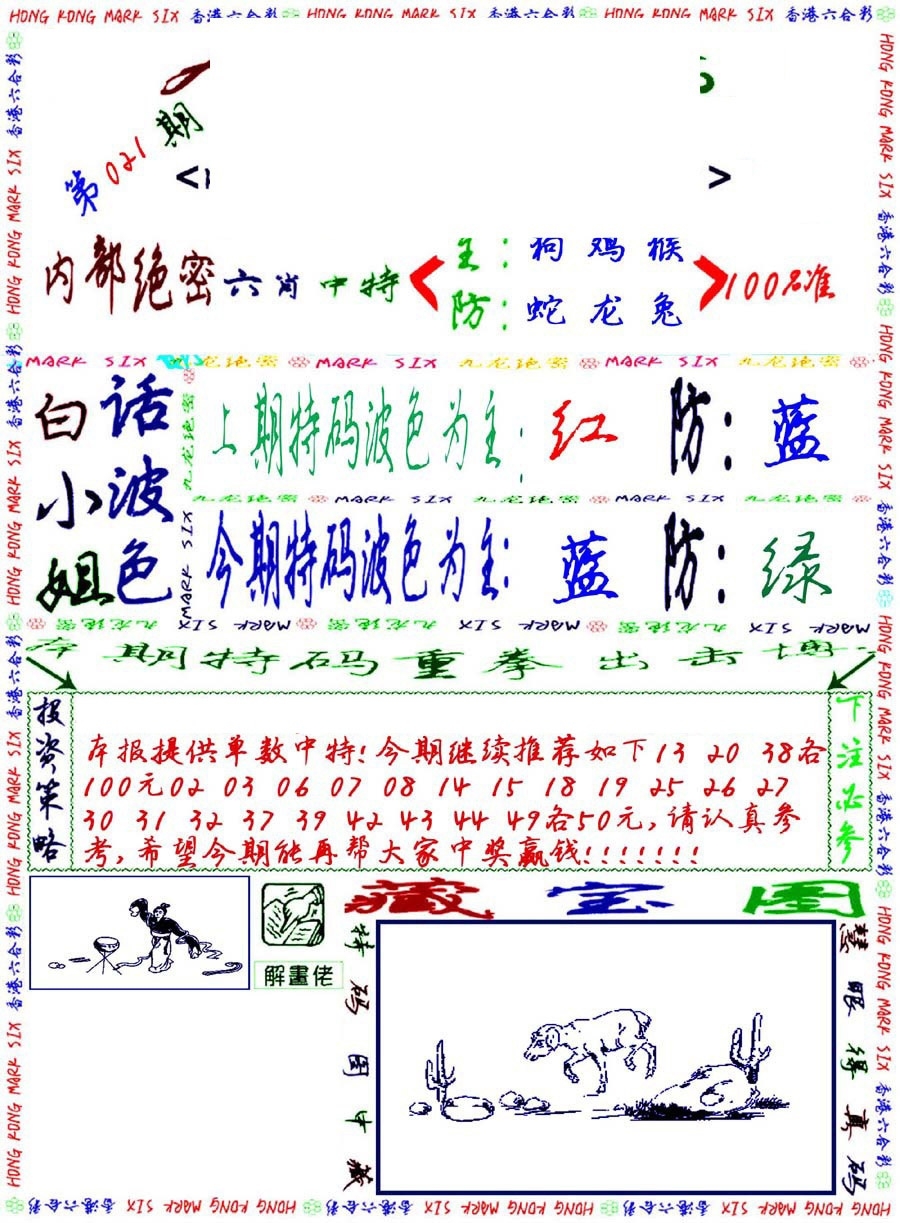 HONG KONG MARK SIX 香港六合彩 HONG KONG MARK SIX 香港六合彩 HONG KONG MARK SIX 香港六合彩
第021期
< >
内部绝密六肖中特 < 主:狗鸡猴 > 100%准
防:蛇龙兔
MARK SIX 九龙绝密 MARK SIX 九龙绝密 MARK SIX 九龙绝密
白小姐
话波色
上期特码波色为主:红 防:蓝
九龙绝密 MARK SIX 九龙绝密 MARK SIX 九龙绝密
今期特码波色为主:蓝 防:绿
MARK SIX 九龙绝密 MARK SIX 九龙绝密 MARK SIX 九龙绝密
期特码重拳出击
投资策略
本报提供单数中特!今期继续推荐如下13 20 38各
100元02 03 06 07 08 14 15 18 19 25 26 27
30 31 32 37 39 42 43 44 49各50元,请认真参
考,希望今期能再帮大家中奖赢钱!!!!!!!
下注必参
解畫佬
藏宝图
特码图中藏
慧眼得真码
HONG KONG MARK SIX 香港六合彩 HONG KONG MARK SIX 香港六合彩 HONG KONG MARK SIX 香港六合彩